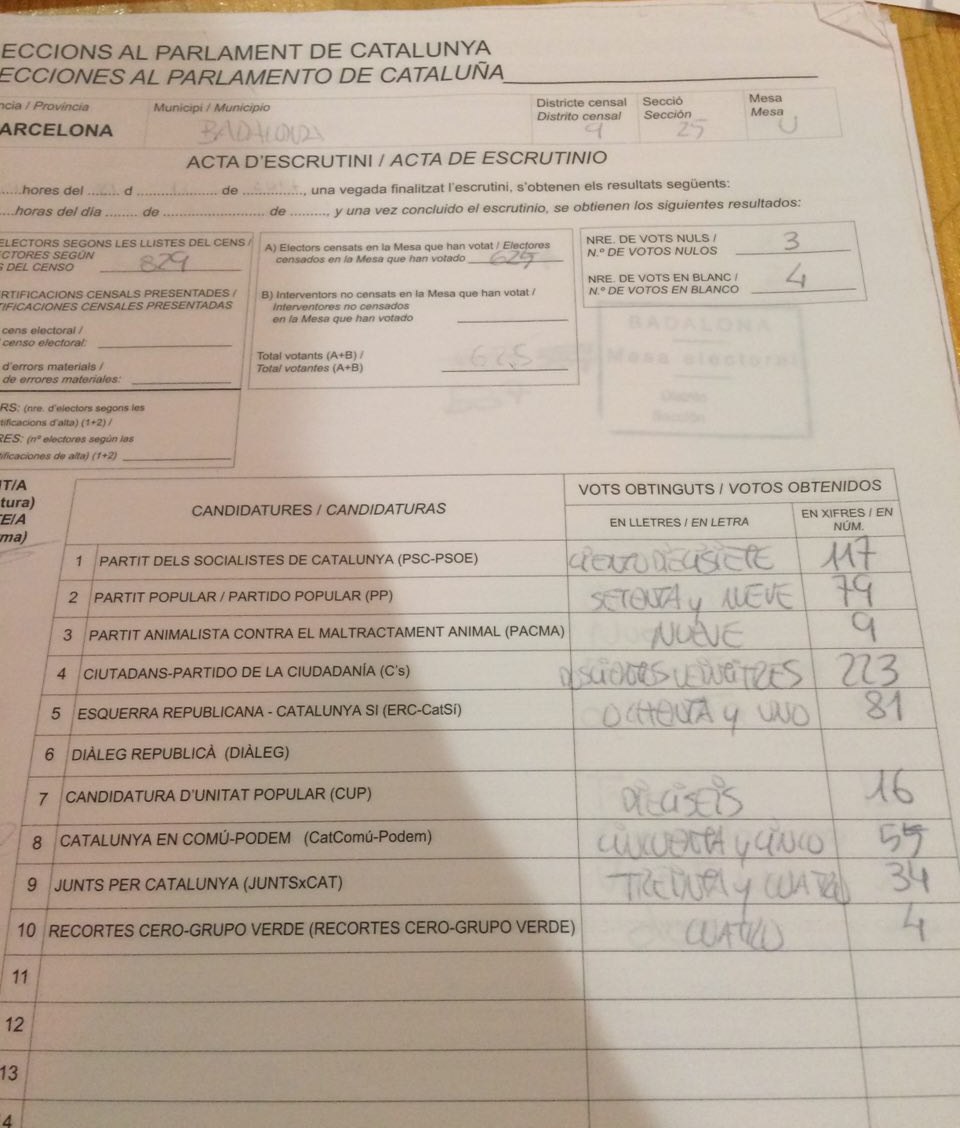 ECCIONS AL PARLAMENT DE CATALUNYA
ECCIONES AL PARLAMENTO DE CATALUÑA
ncia / Província Municipi / Municipio Districte censal Secció Mesa
Distrito censal Sección Mesa
ARCELONA BADALONA 9 25 U
ACTA D'ESCRUTINI / ACTA DE ESCRUTINIO
......hores del ........ d .................. de .............., una vegada finalitzat l'escrutini, s'obtenen els resultats següents:
....horas del día ........ de ....................... de ........., y una vez concluido el escrutinio, se obtienen los siguientes resultados:
ELECTORS SEGONS LES LLISTES DEL CENS /
ECTORES SEGÚN
S DEL CENSO 829
RTIFICACIONS CENSALS PRESENTADES /
TIFICACIONES CENSALES PRESENTADAS
cens electoral /
censo electoral:
d'errors materials /
de errores materiales:
RS: (nre. d'electors segons les
tificacions d'alta) (1+2) /
RES: (nº electores según las
tificaciones de alta) (1+2)
A) Electors censats en la Mesa que han votat / Electores
censados en la Mesa que han votado 625
B) Interventors no censats en la Mesa que han votat /
Interventores no censados
en la Mesa que han votado
Total votants (A+B) /
Total votantes (A+B) 625
NRE. DE VOTS NULS /
N.º DE VOTOS NULOS 3
NRE. DE VOTS EN BLANC /
N.º DE VOTOS EN BLANCO 4
BADALONA
Mesa electoral
Distrito
Sección
NT/A
tura)
TE/A
ma)
CANDIDATURES / CANDIDATURAS VOTS OBTINGUTS / VOTOS OBTENIDOS
EN LLETRES / EN LETRA EN XIFRES / EN NÚM.
1 PARTIT DELS SOCIALISTES DE CATALUNYA (PSC-PSOE) CIENTO DIECISIETE 117
2 PARTIT POPULAR / PARTIDO POPULAR (PP) SETENTA y NUEVE 79
3 PARTIT ANIMALISTA CONTRA EL MALTRACTAMENT ANIMAL (PACMA) NUEVE 9
4 CIUTADANS-PARTIDO DE LA CIUDADANÍA (C's) DOSCIENTOS VEINTITRES 223
5 ESQUERRA REPUBLICANA - CATALUNYA SI (ERC-CatSí) OCHENTA y UNO 81
6 DIÀLEG REPUBLICÀ (DIÀLEG)
7 CANDIDATURA D'UNITAT POPULAR (CUP) DIECISEIS 16
8 CATALUNYA EN COMÚ-PODEM (CatComú-Podem) CINCUENTA y CINCO 55
9 JUNTS PER CATALUNYA (JUNTSxCAT) TREINTA y CUATRO 34
10 RECORTES CERO-GRUPO VERDE (RECORTES CERO-GRUPO VERDE) CUATRO 4
11
12
13
4